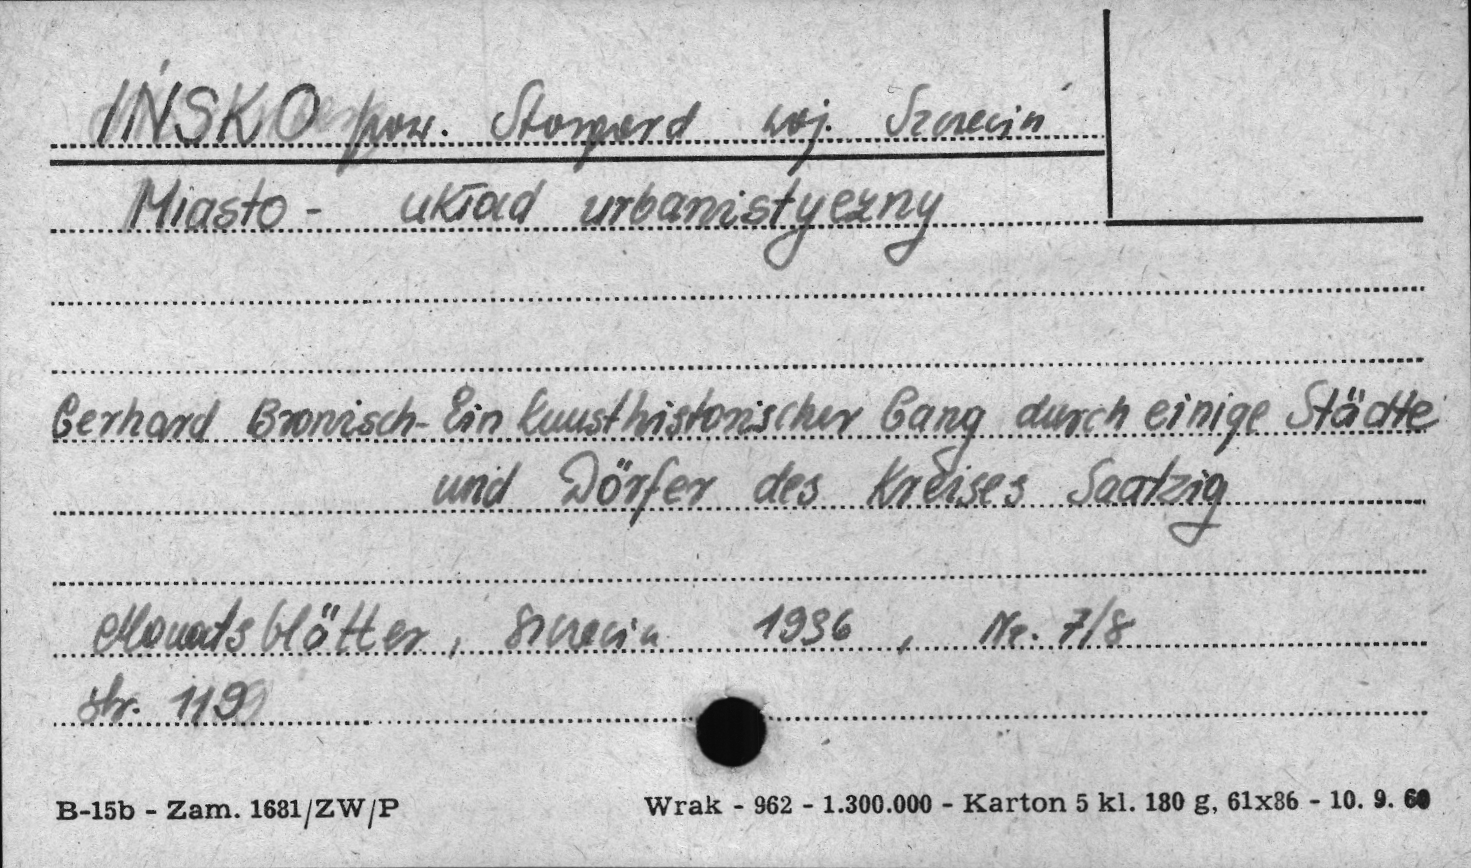 IŃSKO pow. Stargard woj. Szczecin
Miasto - układ urbanistyczny
Gerhard Bronisch - Ein kunsthistorischer Gang durch einige Städte
und Dörfer des Kreises Saatzig
Monatsblätter, Szczecin 1936, Nr. 7/8
str. 119
B-15b - Zam. 1681/ZW/P
Wrak - 962 - 1.300.000 - Karton 5 kl. 180 g, 61x86 - 10. 9. 60